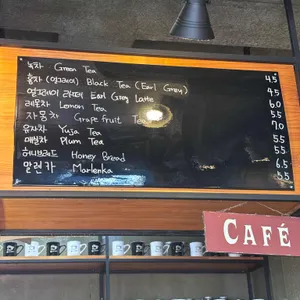 녹차 Green Tea 4.5
홍차 (얼그레이) Black Tea (Earl Grey) 4.5
얼그레이 라떼 Earl Grey Latte 6.0
레몬차 Lemon Tea 5.5
자몽차 Grapefruit Tea 7.0
유자차 Yuja Tea 5.5
매실차 Plum Tea 5.5
허니브레드 Honey Bread 6.5
말렌카 Marlenka 5.5
CAFÉ